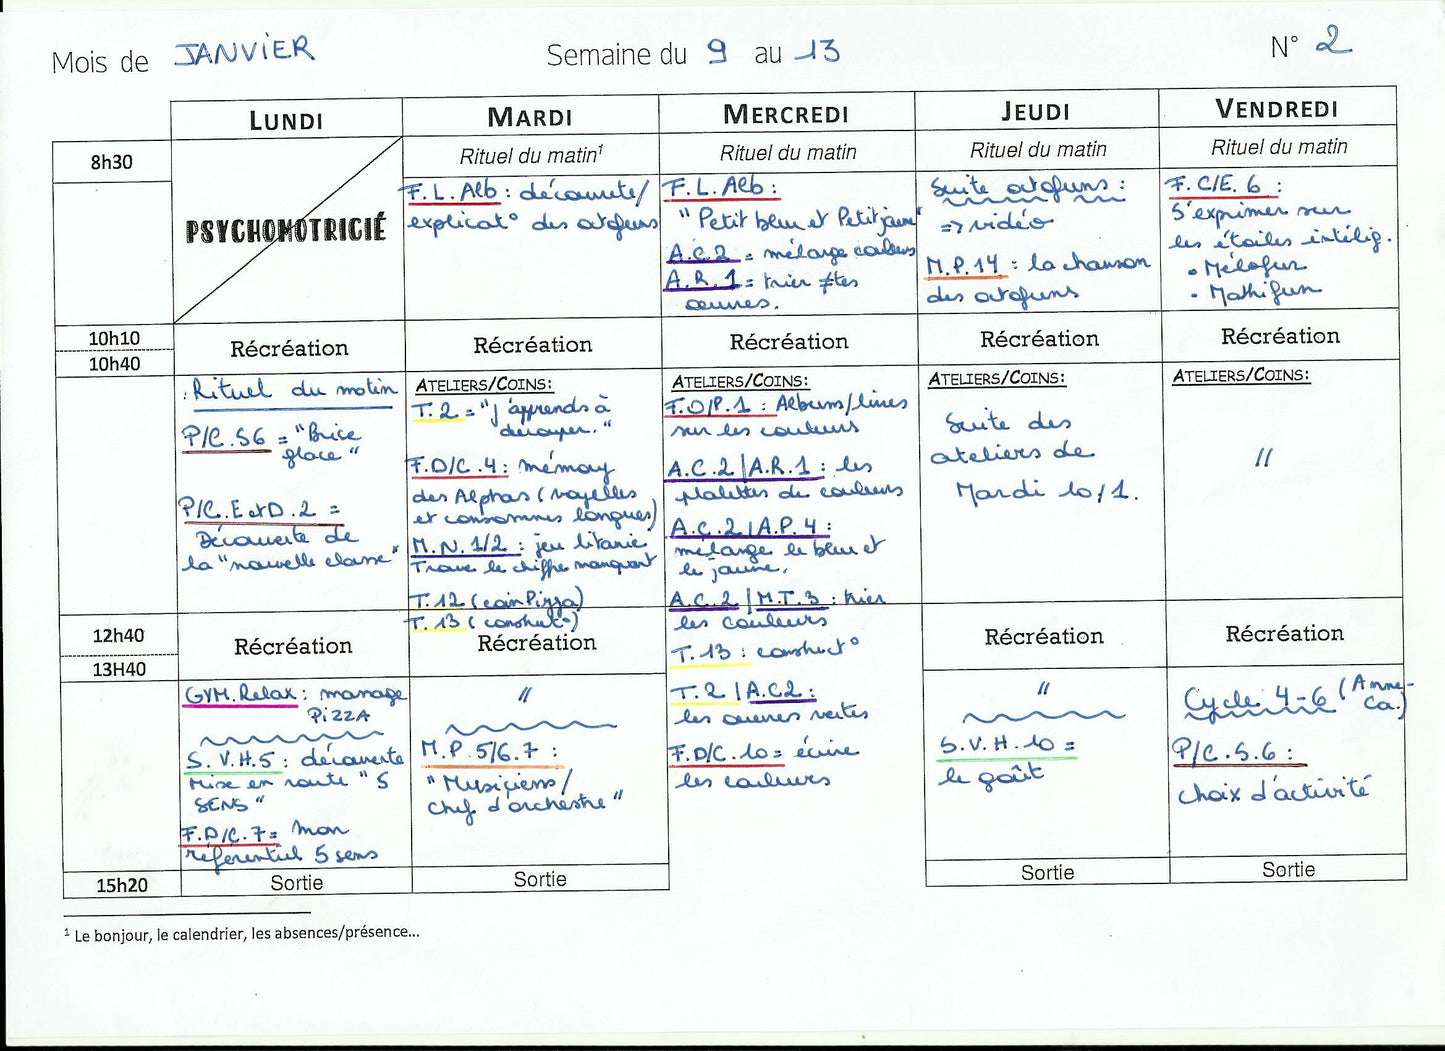 Mois de JANVIER
Semaine du 9 au 13
N° 2
LUNDI
MARDI
MERCREDI
JEUDI
VENDREDI
8h30
PSYCHOMOTRICIÉ
Rituel du matin¹
Rituel du matin
Rituel du matin
Rituel du matin
F.L.Alb : découverte/
explicat° des otofuns
F.L.Alb :
"Petit bleu et Petit jaune"
A.C.2 = mélange couleurs
A.R.1 = trier ≠tes
oeuvres.
Suite otofuns :
=> vidéo
M.P.14 : la chanson
des otofuns
F.C/E.6 :
S'exprimer sur
les étoiles intellig.
• Mélofun
• Mathifun
10h10
10h40
Récréation
Récréation
Récréation
Récréation
Récréation
Rituel du matin
P/C.S6 = "Brice
glace"
P/C.EetD.2 =
Découverte de
la "nouvelle classe"
ATELIERS/COINS:
T.2 = "J'apprends à
découper."
F.D/C.4 : mémory
des Alphas (voyelles
et consonnes longues)
M.N.1/2 : jeu litanie
Trouve le chiffre manquant
T.12 (coin Pizza)
T.13 (construct°)
ATELIERS/COINS:
F.O/P.1 : Albums/livres
sur les couleurs
A.C.2/A.R.1 : les
palettes de couleurs
A.C.2/A.P.4 :
mélange le bleu et
le jaune.
A.C.2/M.T.3 : trier
les couleurs
T.13 : construct°
T.2/A.C2 :
les oeuvres vertes
F.D/C.10 = écrire
les couleurs
ATELIERS/COINS:
Suite des
ateliers de
Mardi 10/1.
ATELIERS/COINS:
"
12h40
13H40
Récréation
Récréation
Récréation
Récréation
GYM.Relax : massage
PIZZA
S.V.H.5 : découverte
Mise en route "5
SENS"
F.D/C.7 = mon
référentiel 5 sens
"
M.P.5/6.7 :
"Musiciens/
Chef d'orchestre"
"
S.V.H.10 =
le goût
Cycle 4-6 (Anne-
Ca.)
P/C.S.6 :
choix d'activité
15h20
Sortie
Sortie
Sortie
Sortie
¹ Le bonjour, le calendrier, les absences/présence...